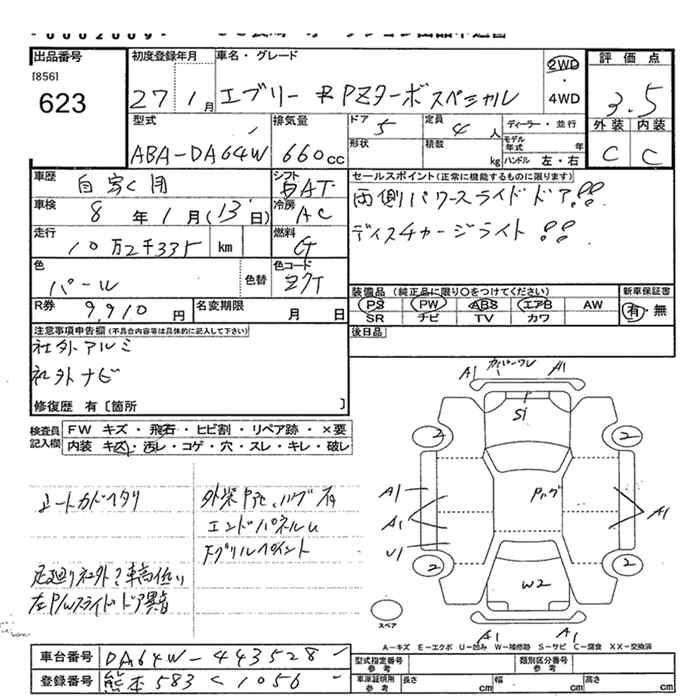 出品番号
[856]
623
初度登録年月
27 1月
車名・グレード
エブリー PZターボスペシャル
2WD
・
4WD
評価点
3.5
外装 内装
C C
型式
ABA-DA64W
排気量
660cc
ドア 5
形状
定員 4人
積載 kg
ディーラー・並行
モデル年式 年
ハンドル 左・右
車歴
自家用
シフト
AT
車検
8年1月(13日)
冷房
AC
走行
10万2千335 km
燃料
G
色
パール
色替
色コード
Z7T
R券
9,910円
名変期限
月 日
セールスポイント(正常に機能するものに限ります)
両側パワースライドドア!!
ディスチャージライト!!
装備品(純正品に限り〇をつけてください)
PS PW ABS エアB AW
SR ナビ TV カワ
新車保証書
有・無
後日品
注意事項申告欄(不具合内容等は具体的に記入して下さい)
社外アルミ
社外ナビ
修復歴 有〔箇所 〕
検査員
記入欄
FW キズ・飛石・ヒビ割・リペア跡・×要
内装 キズ・汚レ・コゲ・穴・スレ・キレ・破レ
シートカドヘタリ
エンドパネルU
足廻り社外?車高低い
左P/Wスライドドア異音
A1 A1
Si
2 2
A1
A1
U1
A1
2 2
W2
A1 A1
スペア
A-キズ E-エクボ U-凹み W-補修跡 S-サビ C-腐食 XX-交換済
車台番号
DA64W-443528
登録番号
熊本583く1056
型式指定番号
参考
類別区分番号
参考
車庫証明用
参考
長さ cm
幅 cm
高さ cm